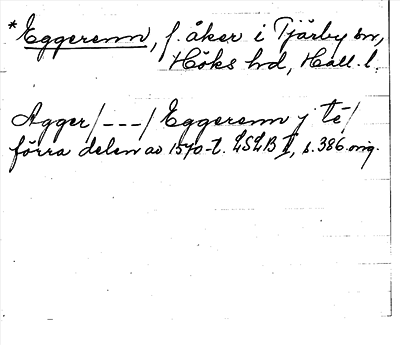 *Eggerenn, f. åker i Tjärby sn,
Höks hd, Hall. l.
Agger/---/Eggerenn j té/
förra delen av 1570-t. LSLB II, s. 386 orig.